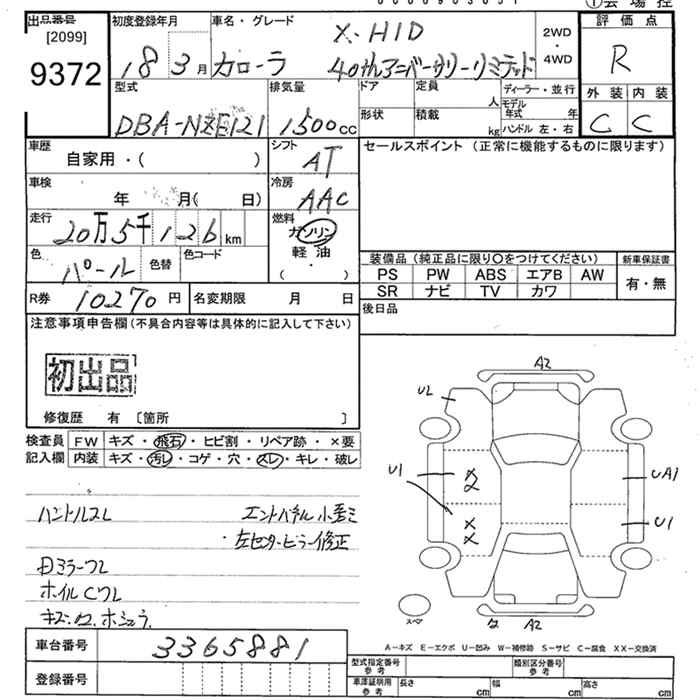 ①会場控
出品番号
[2099]
9372
初度登録年月
18 3月
車名・グレード
X・HID
カローラ 40thアニバーサリーリミテッド
2WD
・
4WD
評価点
R
外装 内装
C C
型式
DBA-NZE121
排気量
1500cc
ドア
形状
定員
人
積載
kg
ディーラー・並行
モデル
年式 年
ハンドル 左・右
車歴
自家用・( )
シフト
AT
セールスポイント (正常に機能するものに限ります)
車検
年 月( 日)
冷房
AAC
走行
20万5千126km
燃料
ガソリン
軽油
( ・ )
色
パール
色替
色コード
装備品 (純正品に限り○をつけてください)
新車保証書
PS PW ABS エアB AW
SR ナビ TV カワ
有・無
R券
10270円
名変期限 月 日
後日品
注意事項申告欄(不具合内容等は具体的に記入して下さい)
初出品
修復歴 有 〔箇所 〕
検査員
記入欄
FW キズ・飛石・ヒビ割・リペア跡・×要
内装 キズ・汚レ・コゲ・穴・スレ・キレ・破レ
ハンドルスレ
エンドパネル小歪ミ
・左センターピラー修正
ホイルCワレ
A2
U2
U1
X
2
X
X
UA1
U1
スペア
A2
A−キズ E−エクボ U−凹み W−補修跡 S−サビ C−腐食 XX−交換済
車台番号
3365881
登録番号
型式指定番号
参考
類別区分番号
参考
車庫証明用
参考
長さ cm 幅 cm 高さ cm